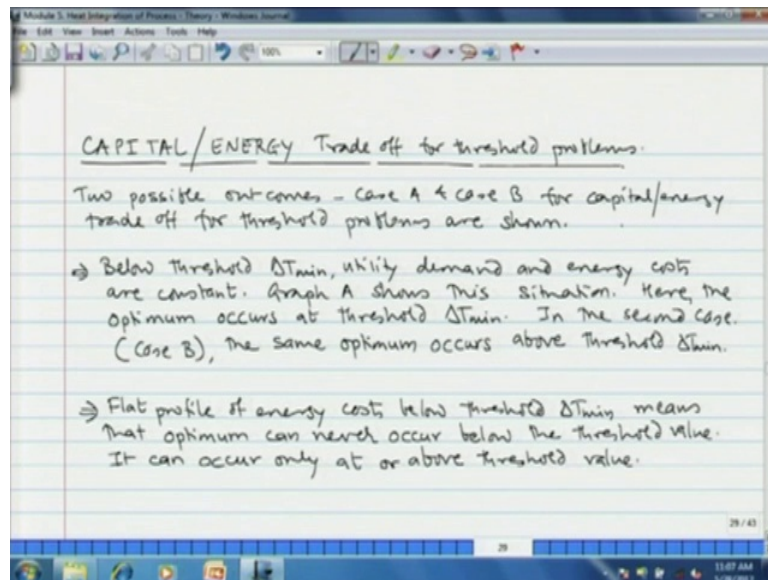 Module 5. Heat Integration of Process - Theory - Windows Journal
File Edit View Insert Actions Tools Help
100%
CAPITAL/ENERGY Trade off for threshold problems.
Two possible outcomes - case A & case B for capital/energy
trade off for threshold problems are shown.
⇒ Below threshold ΔTmin, utility demand and energy costs
are constant. Graph A shows this situation. Here, the
optimum occurs at threshold ΔTmin. In the second case.
(Case B), the same optimum occurs above threshold ΔTmin.
⇒ Flat profile of energy costs below threshold ΔTmin means
that optimum can never occur below the threshold value.
It can occur only at or above threshold value.
29 / 43
29
11:07 AM